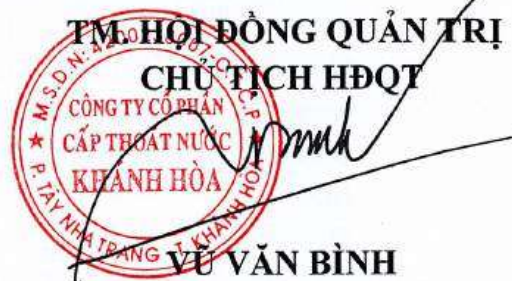 TM. HỘI ĐỒNG QUẢN TRỊ
CHỦ TỊCH HĐQT
CÔNG TY CỔ PHẦN
CẤP THOÁT NƯỚC
KHÁNH HÒA
P. TÂY NHA TRANG - T. KHÁNH HÒA
VŨ VĂN BÌNH